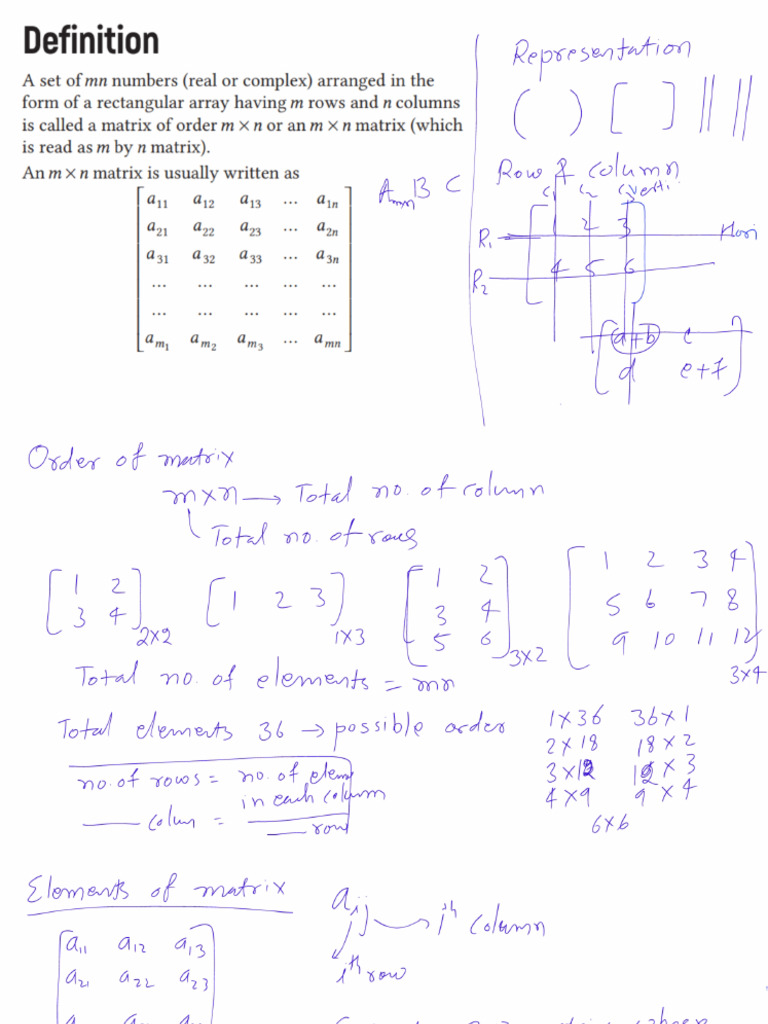 Definition
A set of mn numbers (real or complex) arranged in the
form of a rectangular array having m rows and n columns
is called a matrix of order m × n or an m × n matrix (which
is read as m by n matrix).
An m × n matrix is usually written as
a11 a12 a13 ... a1n
a21 a22 a23 ... a2n
a31 a32 a33 ... a3n
... ... ... ... ...
... ... ... ... ...
am1 am2 am3 ... amn
Amn B C
Representation
( ) [ ] || ||
Row & column
C1 C2 C3 verti.
R1 1 2 3 Hori
R2 4 5 6
a+b c
d e+7
Order of matrix
m×n → Total no. of column
Total no. of rows
[1 2
3 4] 2×2
[1 2 3] 1×3
[1 2
3 4
5 6] 3×2
[1 2 3 4
5 6 7 8
9 10 11 12] 3×4
Total no. of elements = mn
Total elements 36 → possible order
1×36 36×1
2×18 18×2
3×12 12×3
4×9 9×4
6×6
no. of rows = no. of elem
in each column
colum =
row
Elements of matrix
aij → jth column
ith row
a11 a12 a13
a21 a22 a23